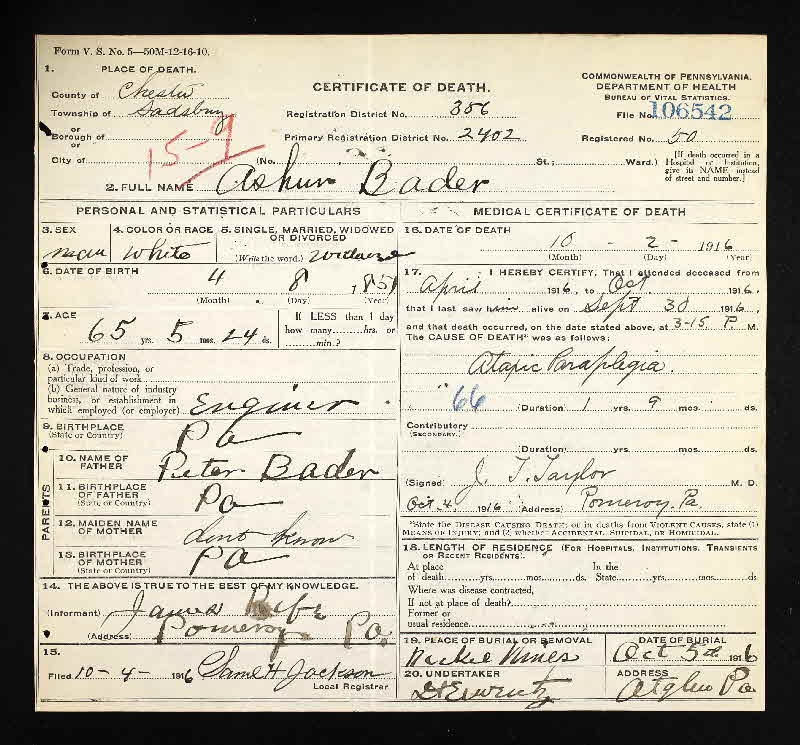 Form V. S. No. 5—50M-12-16-10.
1. PLACE OF DEATH.
County of Chester
Township of Sadsbury
or
Borough of
or
City of
15-9
CERTIFICATE OF DEATH.
Registration District No. 386
Primary Registration District No. 2402
(No. St.; Ward.)
COMMONWEALTH OF PENNSYLVANIA.
DEPARTMENT OF HEALTH
BUREAU OF VITAL STATISTICS.
File No. 106542
Registered No. 50
[If death occurred in a Hospital or Institution, give its NAME instead of street and number.]
2. FULL NAME Bader
PERSONAL AND STATISTICAL PARTICULARS
3. SEX
4. COLOR OR RACE White
5. SINGLE, MARRIED, WIDOWED OR DIVORCED
(Write the word.)
6. DATE OF BIRTH
4 8 1851
(Month) (Day) (Year)
7. AGE
65 yrs. 5 mos. 24 ds.
If LESS than 1 day how many......hrs. or ......min.?
8. OCCUPATION
(a) Trade, profession, or particular kind of work
(b) General nature of industry business, or establishment in which employed (or employer)
9. BIRTHPLACE (State or Country) Pa
PARENTS
10. NAME OF FATHER Peter Bader
11. BIRTHPLACE OF FATHER (State or Country) Pa
12. MAIDEN NAME OF MOTHER dont know
13. BIRTHPLACE OF MOTHER (State or Country) Pa
14. THE ABOVE IS TRUE TO THE BEST OF MY KNOWLEDGE.
(Informant) James
(Address) Pomeroy Pa.
15.
Filed 10-4- 1916 H Jackson
Local Registrar
MEDICAL CERTIFICATE OF DEATH
16. DATE OF DEATH
10 - 2 - 1916
(Month) (Day) (Year)
17. I HEREBY CERTIFY, That I attended deceased from
April 1916, to Oct 1916,
that I last saw him alive on Sept 30 1916,
and that death occurred, on the date stated above, at 3-15 P. M.
The CAUSE OF DEATH* was as follows:
Ataxic Paraplegia.
66
(Duration) 1 yrs. 9 mos. ds.
Contributory
(SECONDARY.)
(Duration) yrs. mos. ds.
(Signed) J. T. Taylor M. D.
Oct. 4. 1916 (Address) Pomeroy, Pa.
*State the DISEASE CAUSING DEATH; or in deaths from VIOLENT CAUSES, state (1) MEANS OF INJURY; and (2) whether ACCIDENTAL, SUICIDAL, or HOMICIDAL.
18. LENGTH OF RESIDENCE (FOR HOSPITALS, INSTITUTIONS, TRANSIENTS OR RECENT RESIDENTS).
At place of death......yrs......mos......ds. In the State......yrs......mos......ds
Where was disease contracted,
If not at place of death?
Former or
usual residence
19. PLACE OF BURIAL OR REMOVAL Nickel Mines
DATE OF BURIAL Oct 5th 1916
20. UNDERTAKER
ADDRESS Atglen Pa